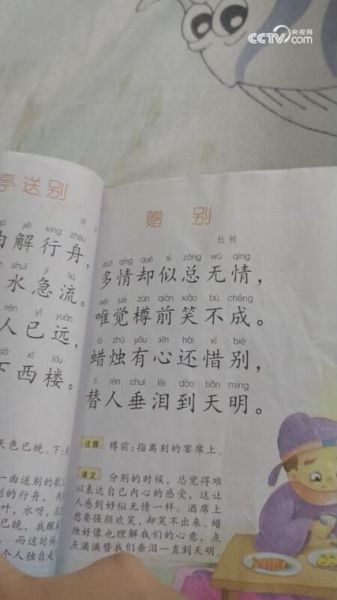 CCTV.com 央视网
亭送别
解行舟，
水急流。
人已远，
下西楼。
天色已晚。下：
一曲送别的歌
的行舟，
叶，水呀，
已晚，我醒
而这时候
个人独自
赠别
杜牧
duō qíng què sì zǒng wú qíng
多情却似总无情，
wéi jué zūn qián xiào bù chéng
唯觉樽前笑不成。
là zhú yǒu xīn hái xī bié
蜡烛有心还惜别，
tì rén chuí lèi dào tiān míng
替人垂泪到天明。
注释 樽前：指离别的宴席上。
译文 分别的时候，总觉得难
以表达自己内心的感受，这让
人感到好似无情一样。酒席上
想要强颜欢笑，却笑不出来。蜡
烛好像也理解我们的心意，点
点滴滴替我们垂泪一直到天明